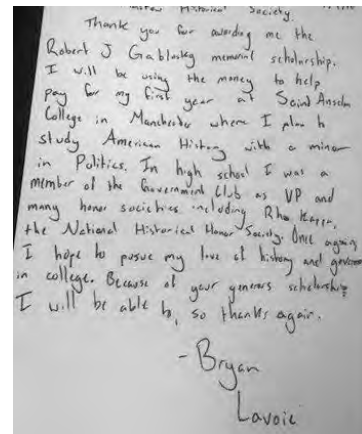 Historical Society.
Thank you for awarding me the
Robert J Gablosky memorial scholarship.
I will be using the money to help
pay for my first year at Saint Anselm
College in Manchester where I plan to
study American History with a minor
in Politics. In high school I was a
member of the Government Club as VP and
many honor societies including Rho Kappa,
the National Historical Honor Society. Once again
I hope to pusue my love of history and govern
in college. Because of your generous scholarship
I will be able to, so thanks again.
- Bryan
Lavoie